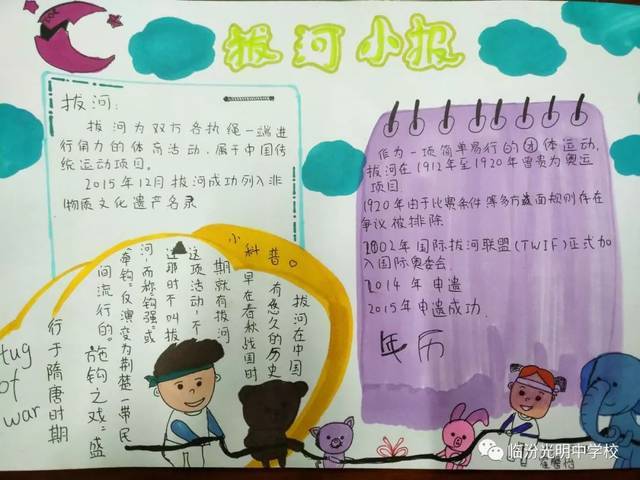 拔河小报
拔河:
拔河为双方各执绳一端进
行角力的体育活动,属于中国传
统运动项目。
2015年12月拔河成功列入非
物质文化遗产名录
小科普。
拔河在中国
有悠久的历史
早在春秋战国时
期就有拔河
这项活动,不
过那时不叫拔
河,而称钩强"或
"牵钩"仅演变为荆楚一带民
间流行的"施钩之戏"盛
行于隋唐时期
tug
of
war
作为一项简单易行的团体运动,
拔河在1912年至1920年曾贵为奥运
项目
1920年由于比赛条件等多方面规则存在
争议被排除
2002年国际拔河联盟(TWIF)正式加
入国际奥委会
2014年申遗
2015年申遗成功
年历
临汾光明中学校